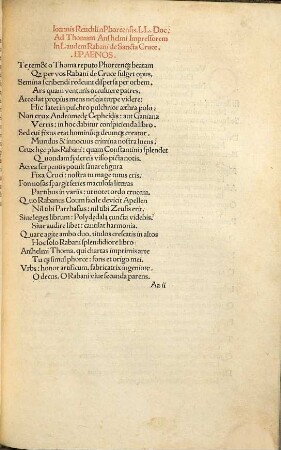 Ioannis Reuchlin Phorcensis. LL. Doc;
Ad Thomam Anshelmi Impressorem
In Laudem Rabani de Sancta Cruce.
EPAENOS.
Te rem & o Thoma reputo Phorcenq; beatam
Qꝫ per vos Rabani de Cruce fulget opus,
Semina scribendi redeunt dispersa per orbem,
Ars quam venturis occuluere patres,
Accedat propius mens nescia turpe videre;
Hic lateat in pulchro pulchrior æthra polo;
Non crux Andromedę Cepheidos: aut Ganiana
Verris: in hoc dabitur conspicienda libro,
Sed cui fixus erat hominūq; deumq; creator,
Mundus & innocuus crimina nostra luens;
Crux hęc plus Rabani: quam Constantinis splendet
Quondam sydereis visio picta notis,
Acta serpentis pocult sanare figura
Fixa Cruci: nostra tu mage tutus eris;
Formosas spargit series maculosa litteras
Partibus in variis: ut notet ordo crucem,
Quo Rabanus Coum facile devicit Apellen
Nil tibi Parrhasius: nil tibi Zeusis erit,
Siue leges librum: Polydędalą cuncta videbis:
Siue audire libet: cantitat harmonia.
Quare agite ambo duo, titulos crescatis in altos
Hoc solo Rabani splendidiore libro;
Anshelmi Thoma, qui chartas imprimis arte
Tu q; simul phorce: fons et origo mei,
Vrbs: honor artificum, fabricatrix ingeniorum,
O decus, O Rabani viue secunda parens.
Aa ii